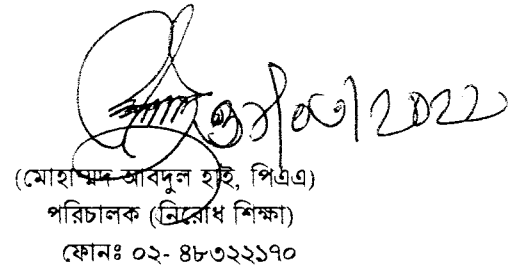 (মোহাম্মদ আবদুল হাই, পিএএ)
পরিচালক (নিরোধ শিক্ষা)
ফোনঃ ০২- ৪৮৩২২১৭০